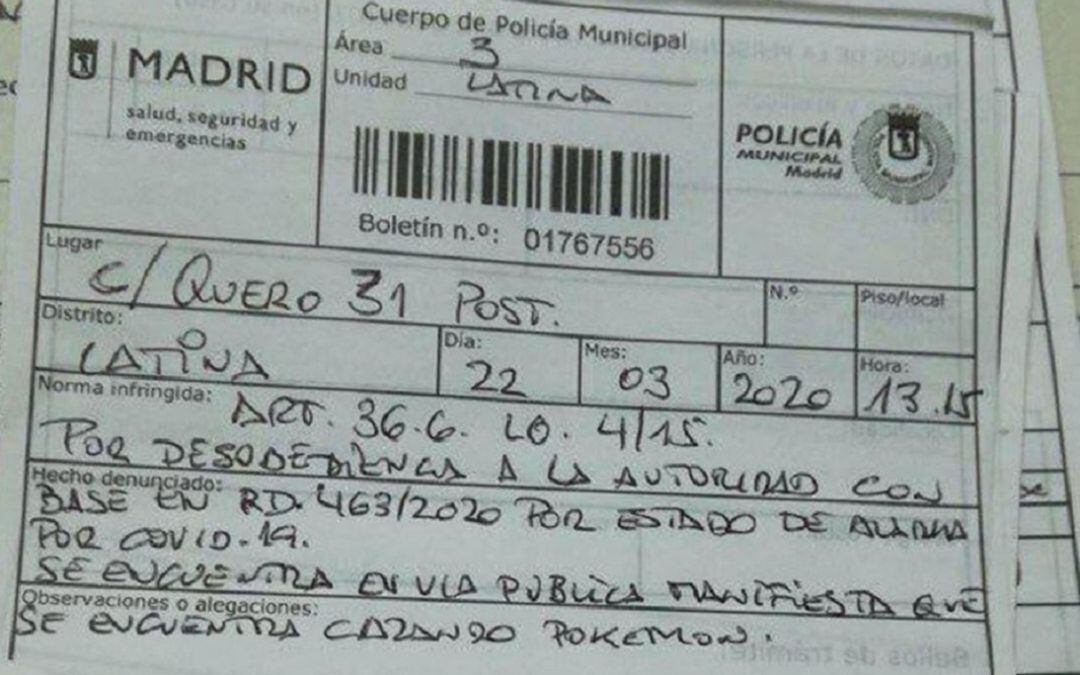 Cuerpo de Policía Municipal
MADRID
salud, seguridad y
emergencias
Área 3
Unidad LATINA
Boletín n.º: 01767556
POLICÍA
MUNICIPAL
Madrid
Lugar
C/ QUERO 31 POST.
N.º
Piso/local
Distrito:
LATINA
Día:
22
Mes:
03
Año:
2020
Hora:
13.15
Norma infringida:
ART. 36.6. LO. 4/15.
POR DESOBEDIENCIA A LA AUTORIDAD CON
Hecho denunciado:
BASE EN RD. 463/2020 POR ESTADO DE ALARMA
POR COVID.19.
SE ENCUENTRA EN VIA PUBLICA MANIFIESTA QUE
Observaciones o alegaciones:
SE ENCUENTRA CAZANDO POKEMON.